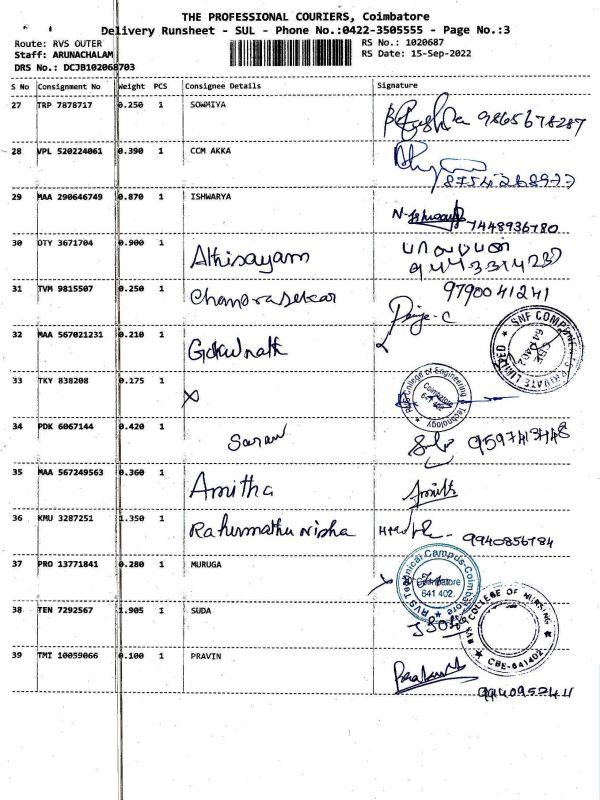 THE PROFESSIONAL COURIERS, Coimbatore
Delivery Runsheet - SUL - Phone No.:0422-3505555 - Page No.:3
Route: RVS OUTER
RS No.: 1020687
Staff: ARUNACHALAM
RS Date: 15-Sep-2022
DRS No.: DCJB102068703
S No Consignment No Weight PCS Consignee Details Signature
27 TRP 7878717 0.250 1 SOWMIYA 9865678287
28 VPL 520224061 0.390 1 CCM AKKA
8754268977
29 MAA 290646749 0.870 1 ISHWARYA
7448936780
30 OTY 3671704 0.900 1 Athisayam
31 TVM 9815507 0.250 1 Chandrasekar 9790041241
32 MAA 567021231 0.210 1 Gokulnath
SNF COMPONENTS PRIVATE LIMITED
33 TKY 838208 0.175 1
RVS College of Engineering & Technology
Coimbatore
641 402
34 PDK 6067144 0.420 1 Saran
35 MAA 567249563 0.360 1 Amitha
36 KMU 3287251 1.350 1 Rahummathu nisha 9940856784
37 PRO 13771841 0.280 1 MURUGA
RVS Technical Campus-Coimbatore
Coimbatore
641 402.
38 TEN 7292567 1.905 1 SUDA
RVS COLLEGE OF NURSING
CBE-641402
39 TMI 10059066 0.100 1 PRAVIN